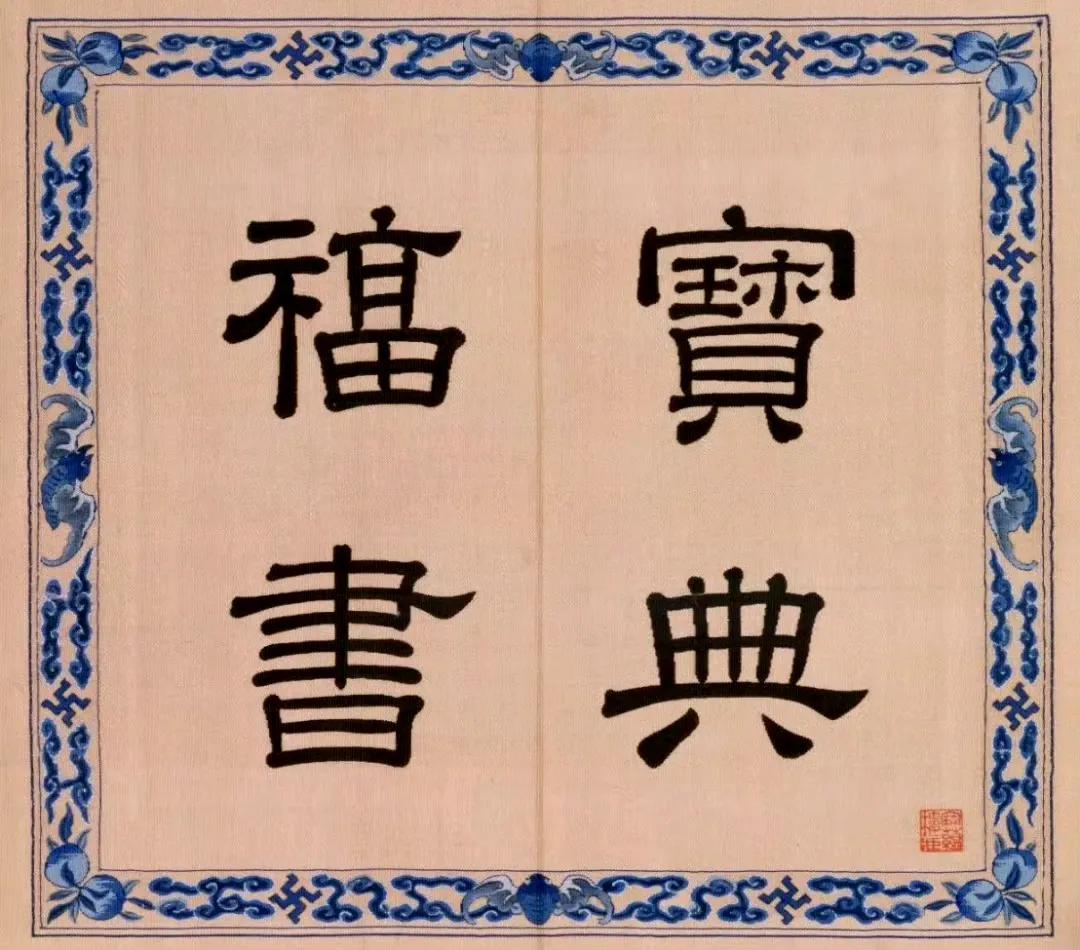 寶典
福書